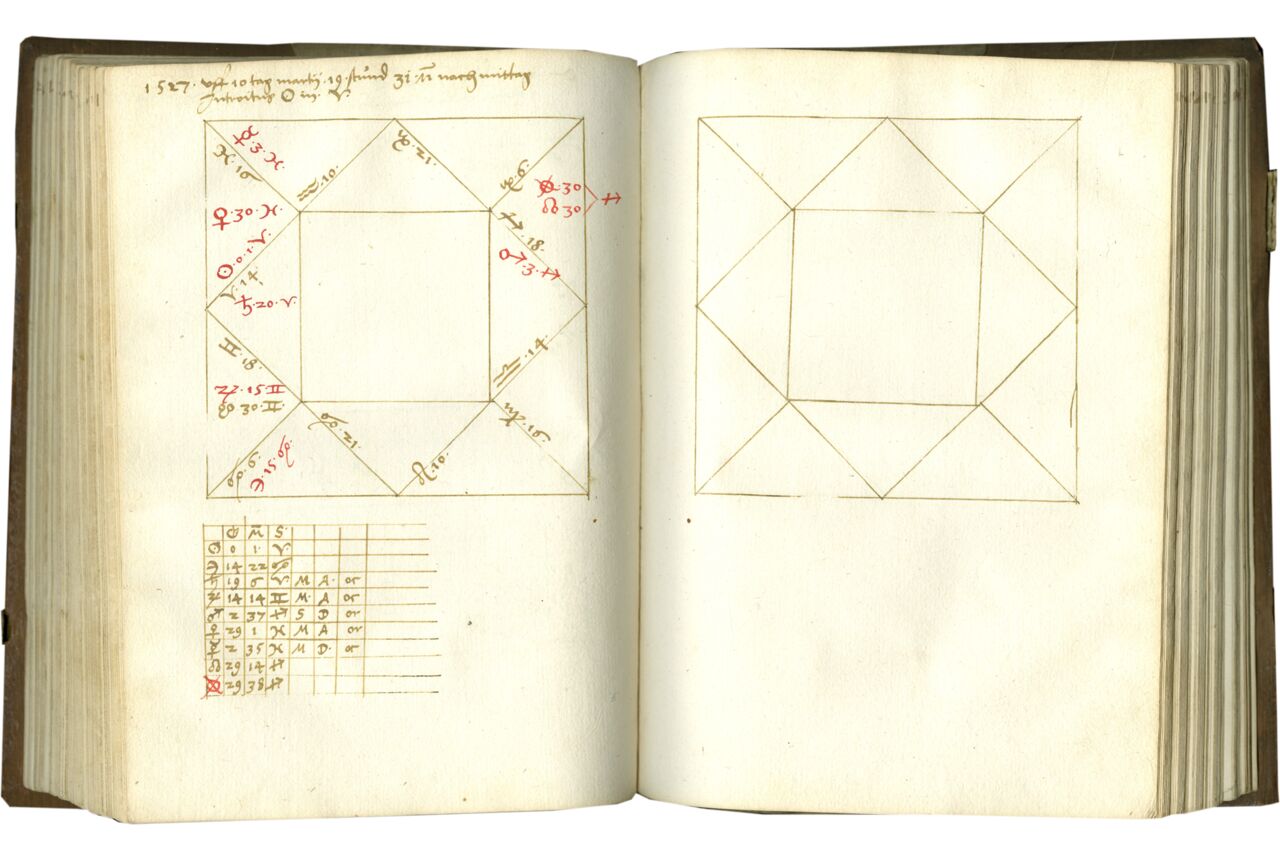 1527. vff 10 tag martij. 19. stund 31. m̄ nach mittag
Introitus ☉ in. ♈.
☿.3.♓
♓.16
♒.10.
♑.21.
♑.6.
⊗.30
☊ 30
♐
♀.30.♓.
♐.18.
☉.0.1.♈.
♂.3.♐
♈.14.
♄.20.♈.
♊.18.
♎.14
♃.15♊
☋ 30.♊.
♋.21.
♍.16.
♋.6.
☾.15♋
♌.10.
G M̄ S.
☉ 0 1. ♈
☽ 14 22 ♋
♄ 19 6 ♈ M A. or
♃ 14 14 ♊ M. A or
♂ 2 37 ♐ S D or
♀ 29 1 ♓ M A or
☿ 2 35 ♓ M D. or
☊ 29 14 ♐
⊗ 29 38 ♐